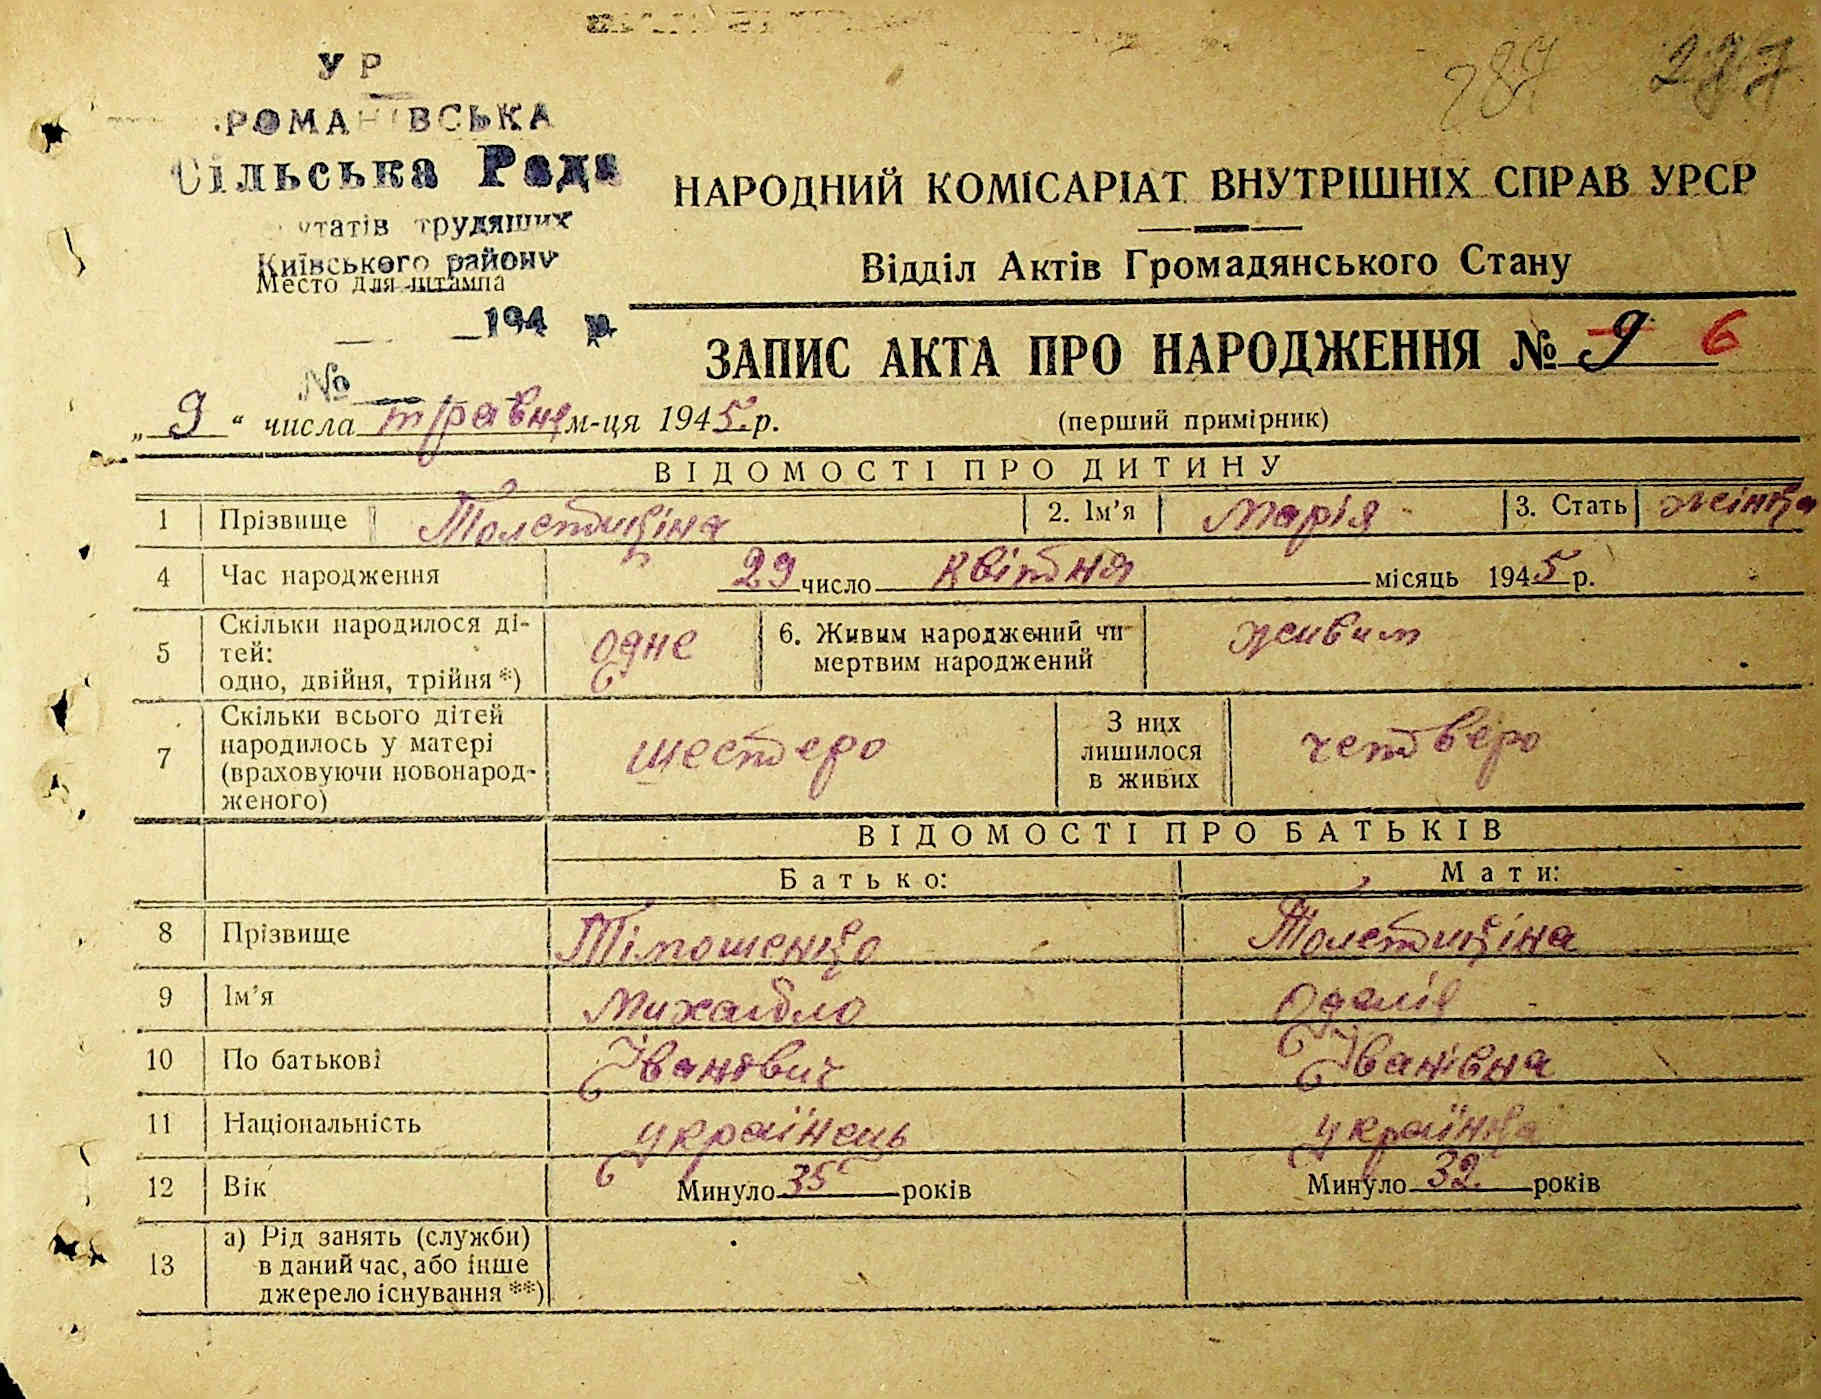 287 277
УР
РОМАНІВСЬКА
Сільська Рада
утатів трудящих
Київського району
Место для штампа
194 р.
№
НАРОДНИЙ КОМІСАРІАТ ВНУТРІШНІХ СПРАВ УРСР
Відділ Актів Громадянського Стану
ЗАПИС АКТА ПРО НАРОДЖЕННЯ № 9 6
„9“ числа травня м-ця 1945 р.
(перший примірник)
ВІДОМОСТІ ПРО ДИТИНУ
1 Прізвище Толстикіна 2. Ім'я Марія 3. Стать жінка
4 Час народження 29 число квітня місяць 1945 р.
5 Скільки народилося ді-
тей:
одно, двійня, трійня *) одне
6. Живим народжений чи
мертвим народжений живим
7 Скільки всього дітей
народилось у матері
(враховуючи новонарод-
женого) шестеро
З них
лишилося
в живих четверо
ВІДОМОСТІ ПРО БАТЬКІВ
Батько: Мати:
8 Прізвище Тімошенко Толстикіна
9 Ім'я Михайло
10 По батькові Іванович Іванівна
11 Національність українець українка
12 Вік Минуло 35 років Минуло 32 років
13 а) Рід занять (служби)
в даний час, або інше
джерело існування **)